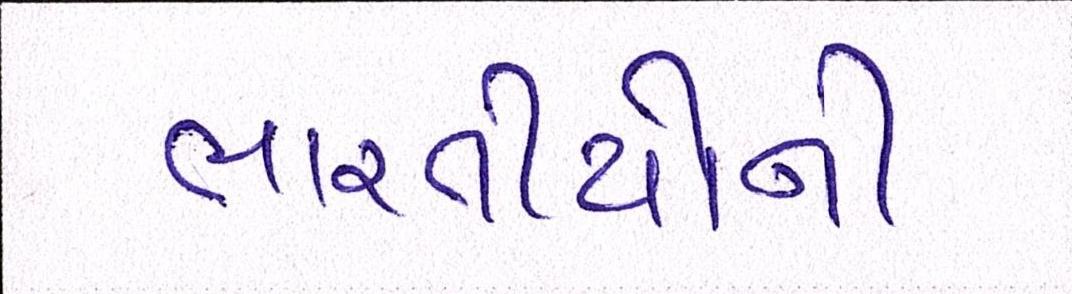 ભારતીયોની